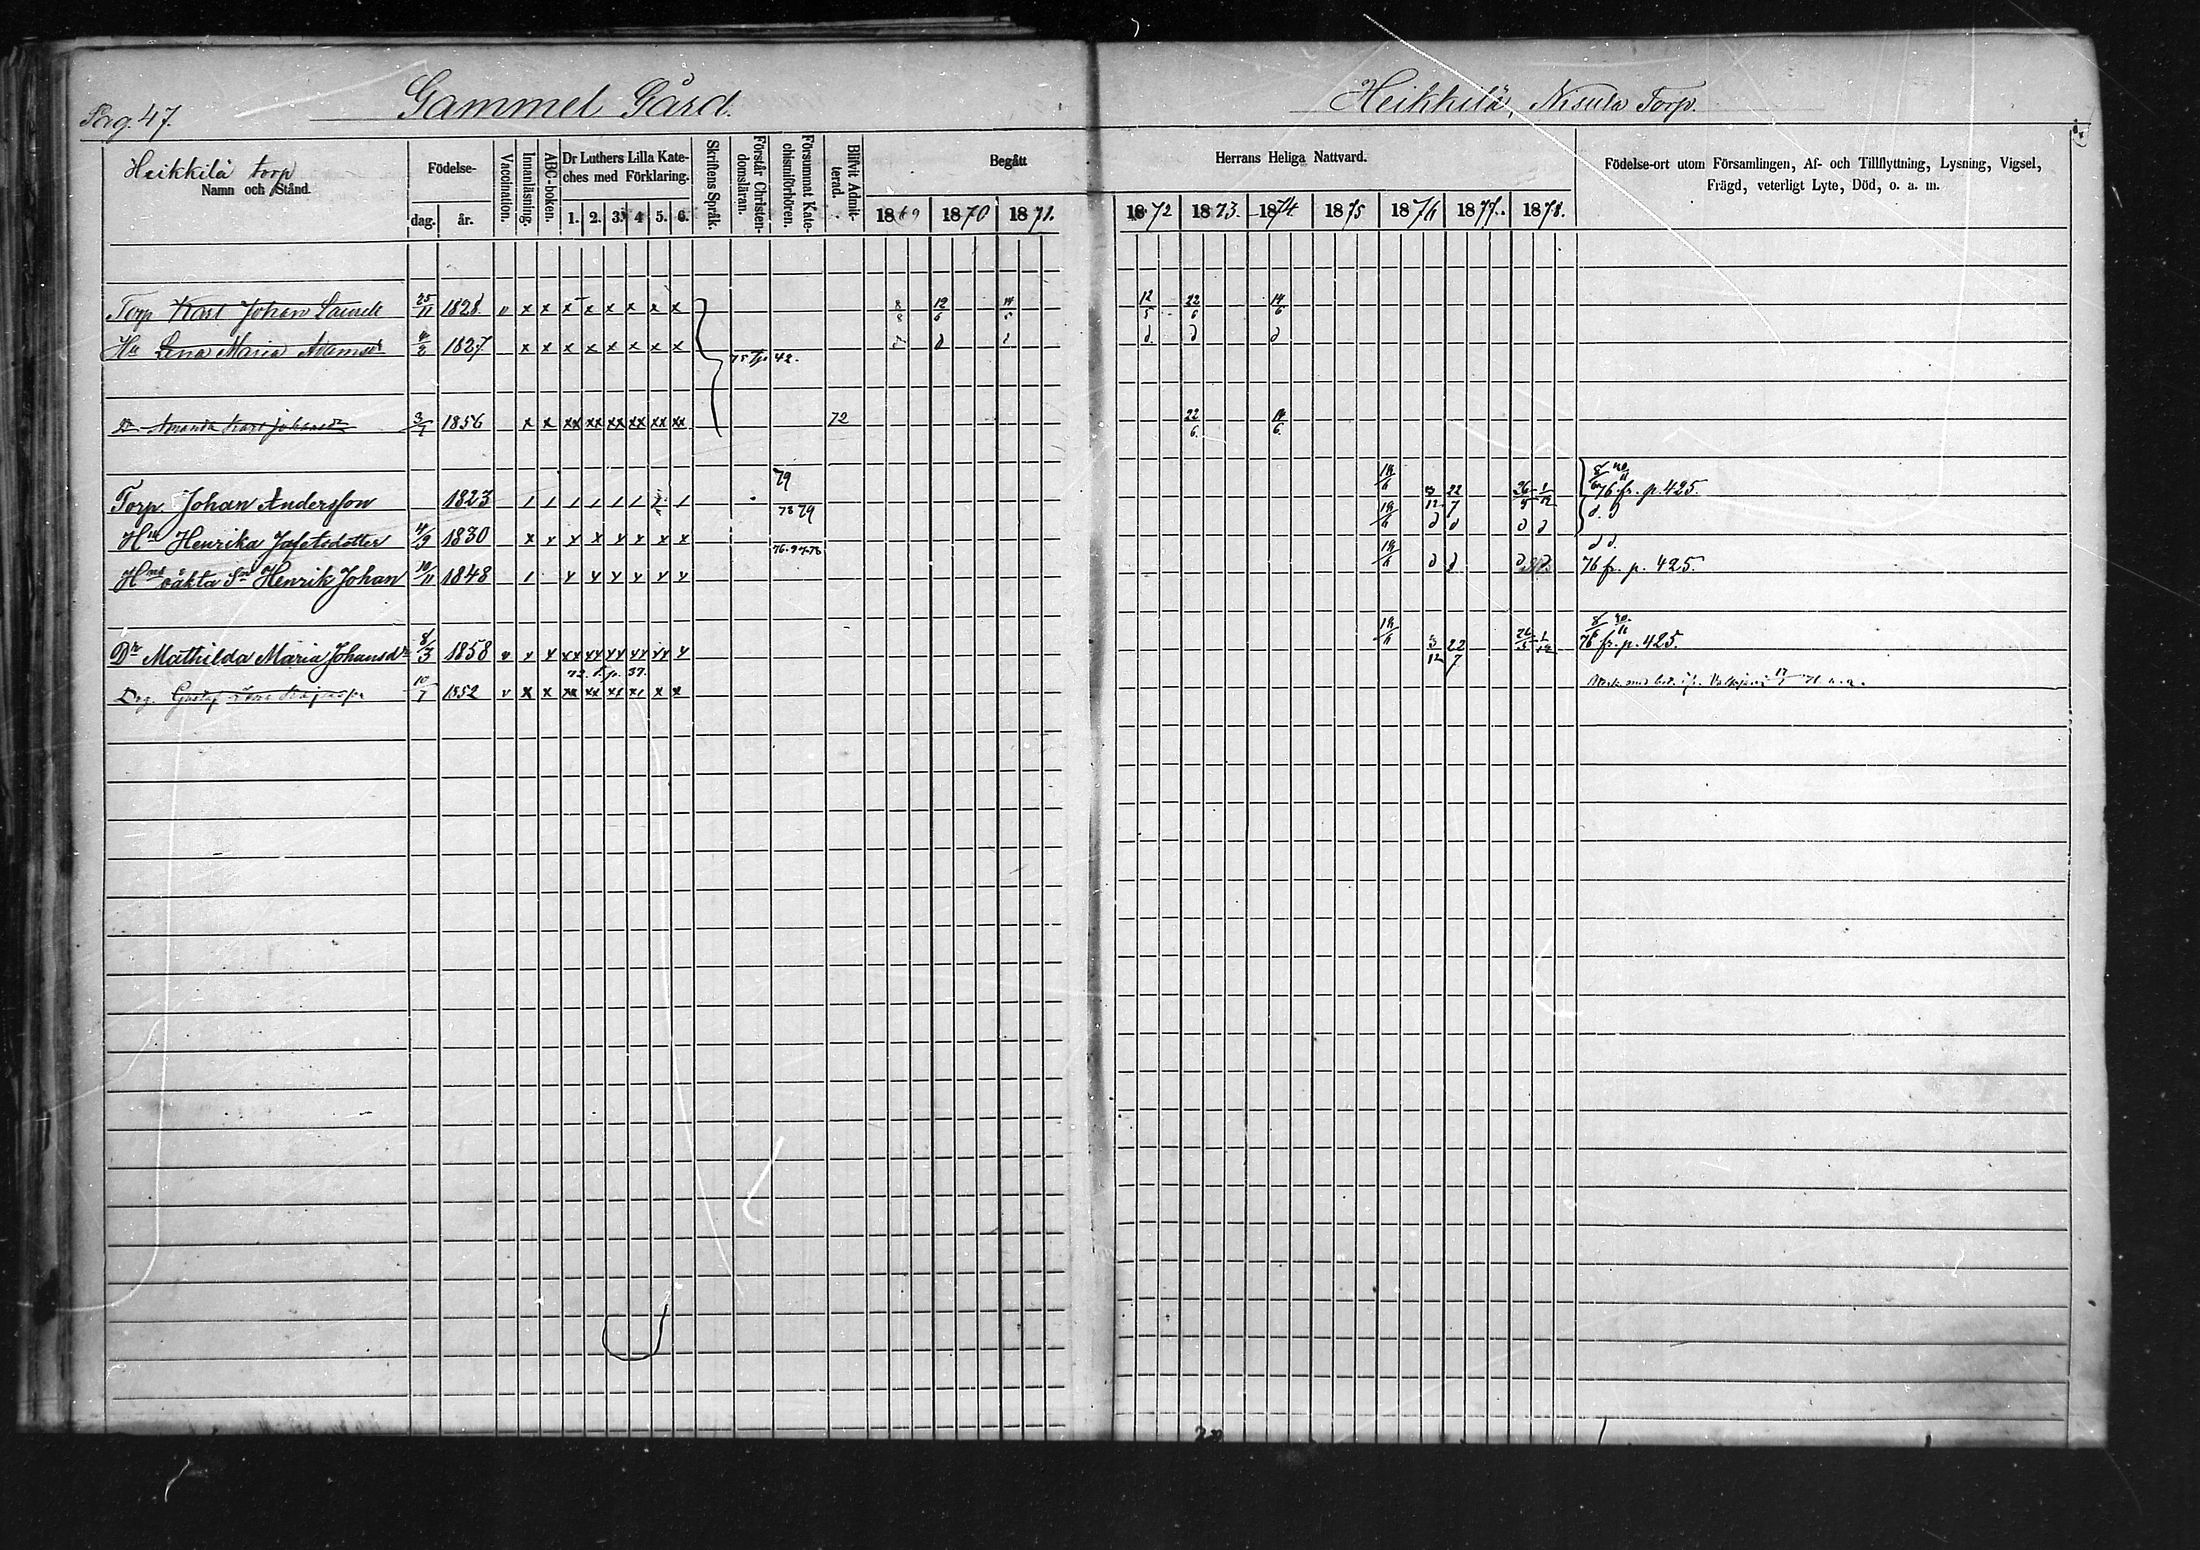 Pag. 47.
Gammel Gård.
Heikkilä, Nisula Torp.
Heikkilä torp
Namn och Stånd.
Födelse-
dag. år.
Vaccination.
Innanläsning.
ABC-boken.
Dr Luthers Lilla Kate-
ches med Förklaring.
1. 2. 3. 4 5. 6.
Skriftens Språk.
Förstår Christen-
domsläran.
Försummat Kate-
chismiförhören.
Blifvit Admit-
terad.
Begått
Herrans Heliga Nattvard.
1869 1870 1871. 1872 1873. 1874 1875 1876 1877. 1878.
Födelse-ort utom Församlingen, Af- och Tillflyttning, Lysning, Vigsel,
Frägd, veterligt Lyte, Död, o. a. m.
Torp Karl Johan 25/11 1828 v x x x x x x x x 12/6 12/5 22/6 14/6
Hu Lena Maria 1827 x x x x x x x x d d d d
42.
Dr Amanda Karl Johansdr 3/7 1856 x x xx xx xx xx xx xx 72 22/6. 14/6.
79
Torp. Johan Andersson 1823 18/6 3/12 22/7 26/5 1/12 76 fr. p. 425.
78 79
Hu Henrika Jafetsdotter 4/9 1830 x x x x x x x x 18/6 d d d d d. d
76. 77. 78
Hns oäkta Sn Henrik Johan 10/11 1848 18/6 d d d 76 fr. p. 425.
Dr Mathilda Maria Johansdr 8/3 1858 18/6 3/12 22/7 26/5 1/12 76 fr. p. 425.
72. t. p. 37.
Drg. Gustaf 10/7 1852 v x x xx xx xx xx x x